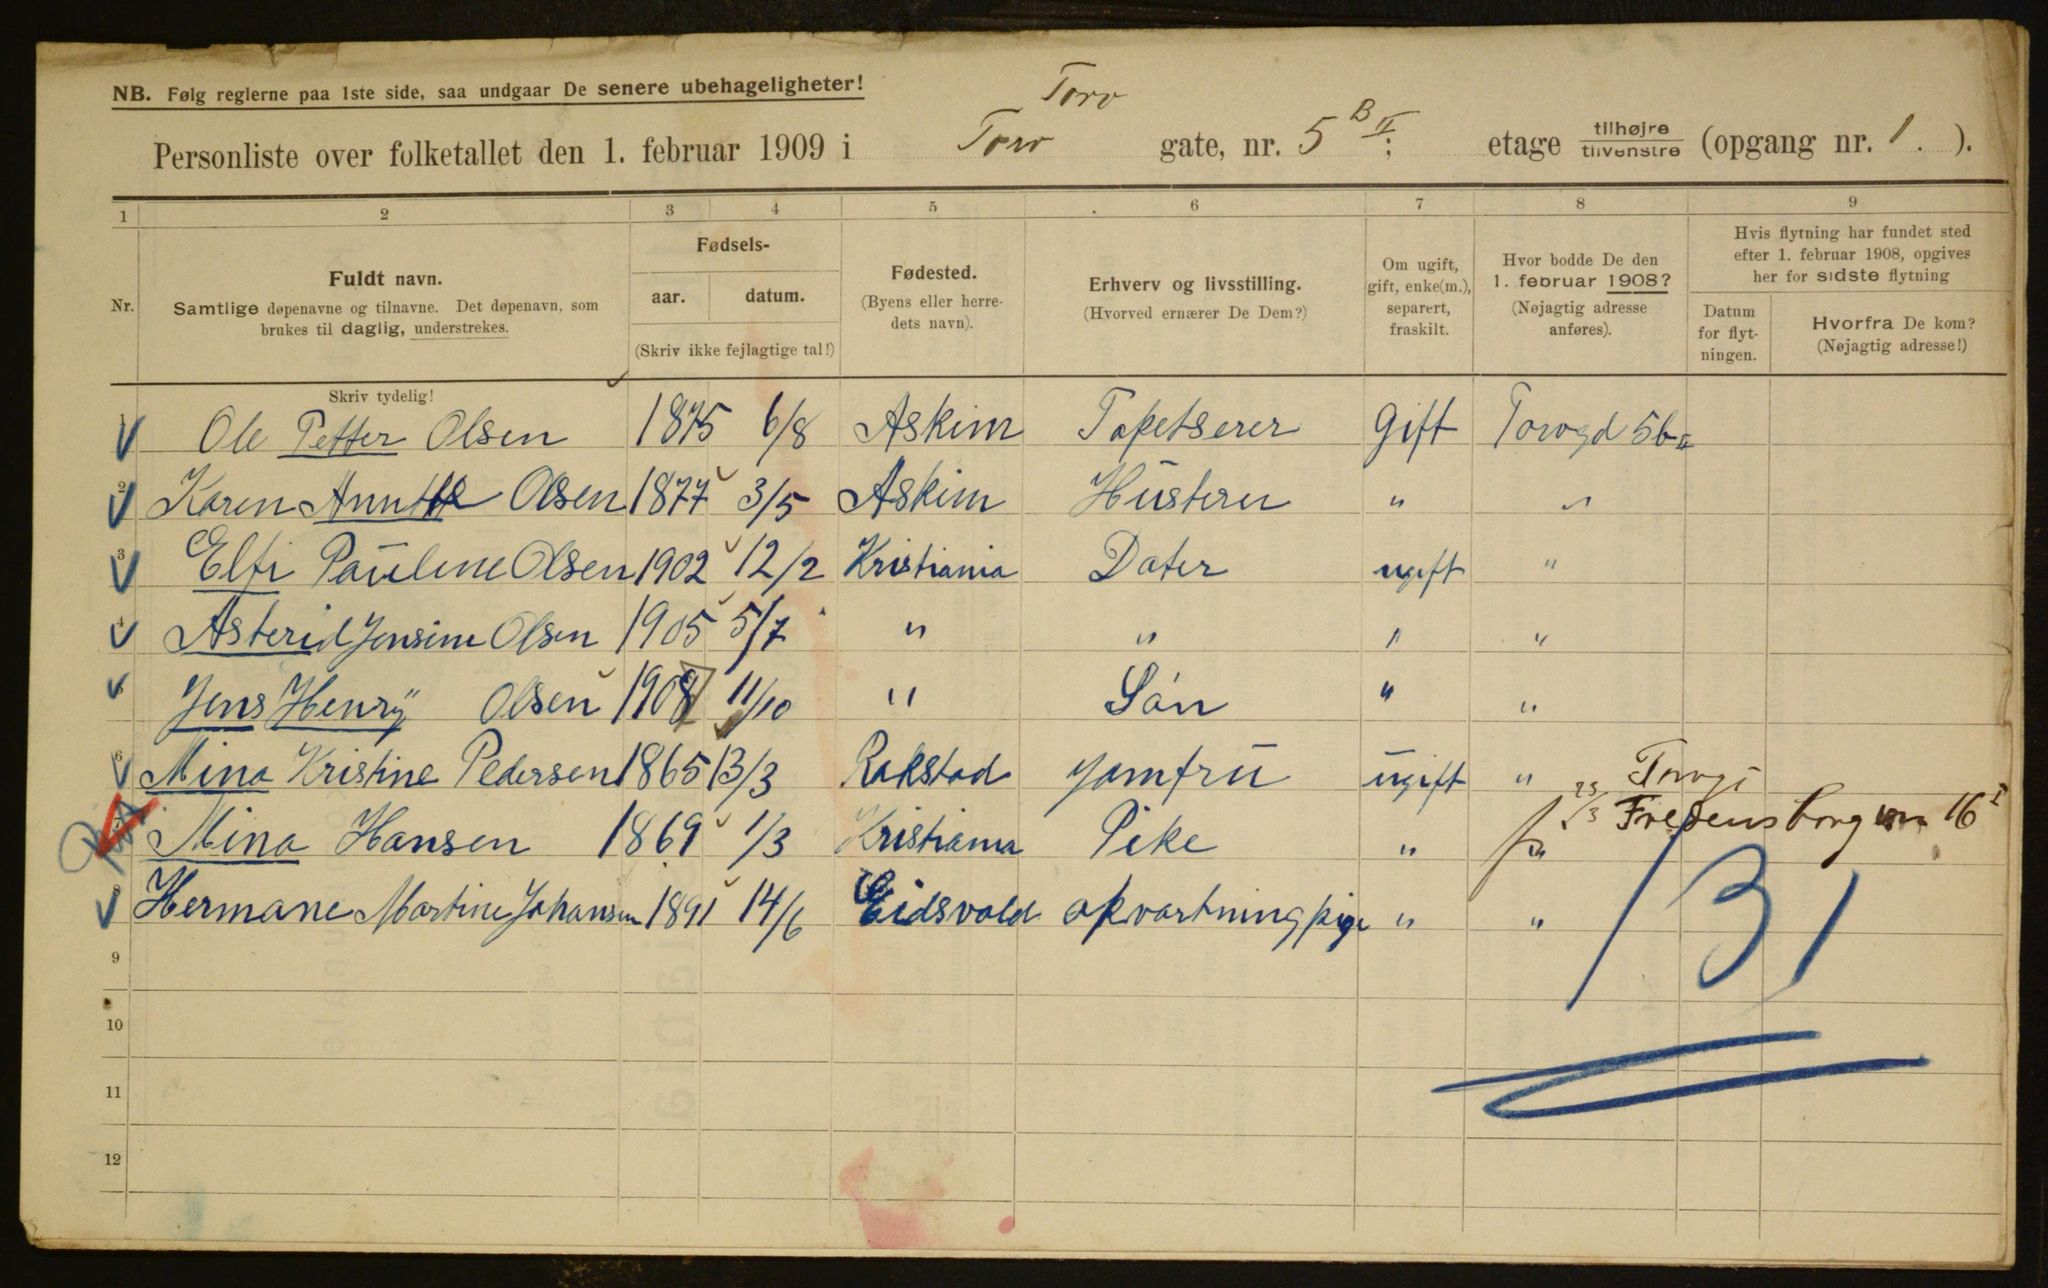 NB. Følg reglerne paa 1ste side, saa undgaar De senere ubehageligheter!
Torv
Personliste over folketallet den 1. februar 1909 i Torv gate, nr. 5 B II; etage tilhøjre tilvenstre (opgang nr. 1. ).
1 2 3 4 5 6 7 8 9
Nr.
Fuldt navn.
Samtlige døpenavne og tilnavne. Det døpenavn, som
brukes til daglig, understrekes.
Fødsels-
aar. datum.
(Skriv ikke fejlagtige tal!)
Fødested.
(Byens eller herre-
dets navn).
Erhverv og livsstilling.
(Hvorved ernærer De Dem?)
Om ugift,
gift, enke(m.),
separert,
fraskilt.
Hvor bodde De den
1. februar 1908?
(Nøjagtig adresse
anføres).
Hvis flytning har fundet sted
efter 1. februar 1908, opgives
her for sidste flytning
Datum
for flyt-
ningen.
Hvorfra De kom?
(Nøjagtig adresse!)
Skriv tydelig!
1 Ole Petter Olsen 1875 6/8 Askim Tapetserer Gift Torvgd 5b II
2 Karen Olsen 1877 3/5 Askim Hustern " "
3 Elfi Pauline Olsen 1902 12/2 Kristiania Dater ugift "
4 Asterid Jensine Olsen 1905 5/7 " " " "
5 Jens Henry Olsen 1907 11/10 " Són " "
6 Mina Kristine Pedersen 1865 13/3 Rakstad Jomfru ugift "
7 Mina Hansen 1869 1/3 Kristiania Pike " " Fredensborgvn 16 I
8 Hermane Martine Johansen 1891 14/6 Eidsvold opvartningpige " "
131
9
10
11
12